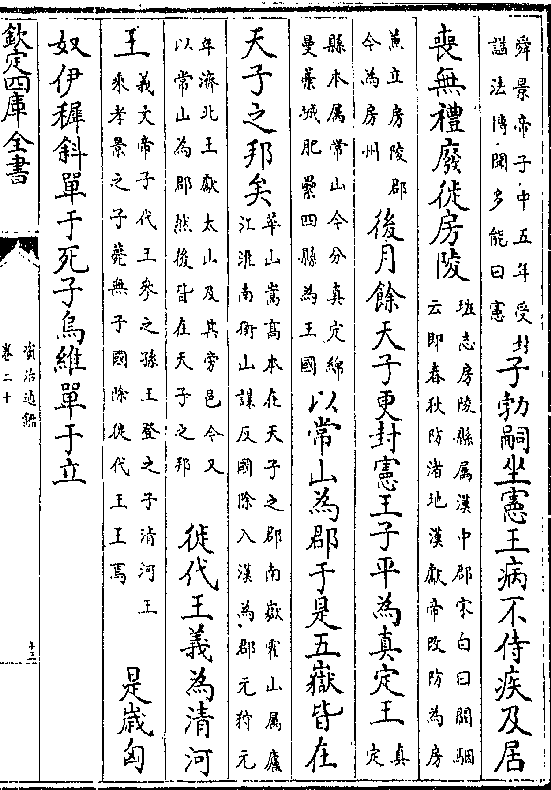 舜景帝子中五年受封
諡法博聞多能曰憲
子勃嗣坐憲王病不侍疾及居
喪無禮廢徙房陵
班志房陵縣属漢中郡宋白曰闞駰
云即春秋防渚地漢獻帝改防為房
陵立房陵郡
今為房州
後月餘天子更封憲王子平為真定王
真定
縣本属常山今分真定綿
曼藁城肥纍四縣為王國
以常山為郡于是五嶽皆在
天子之邦矣
華山嵩高本在天子之郡南嶽霍山属廬
江淮南衡山謀反國除入漢為郡元狩元
年濟北王獻太山及其旁邑今又
以常山為郡然後皆在天子之邦
徙代王義為清河
王
義文帝子代王參之孫王登之子清河王
乘孝景之子薨無子國除徙代王王焉
是歲匈
奴伊穉斜單于死子烏維單于立
欽定四庫全書
資治通鑑
卷二十
十三